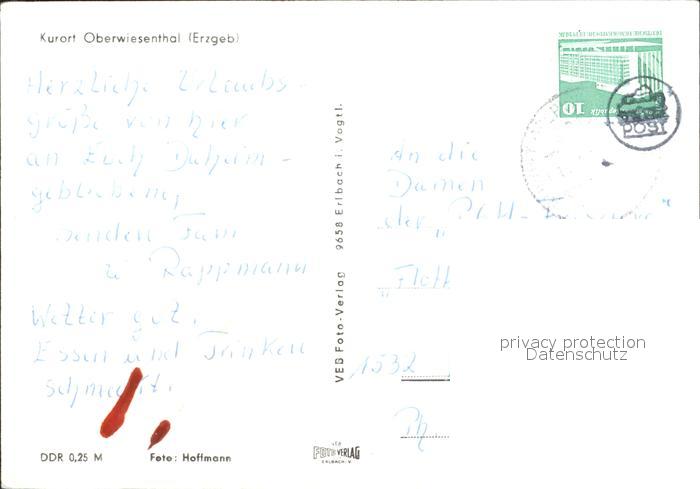 Kurort Oberwiesenthal (Erzgeb)
Herzliche Urlaubs-
grüße von hier
an Euch Daheim-
gebliebene,
senden Fam
Rappmann
Wetter gut,
Essen und Trinken
schmeckt.
DDR 0,25 M Foto: Hoffmann
VEB Foto-Verlag 9658 Erlbach i. Vogtl.
VEB
FOTO VERLAG
ERLBACH i. V.
DEUTSCHE DEMOKRATISCHE REPUBLIK
10
POST
An die
Damen
der
1532
privacy protection
Datenschutz